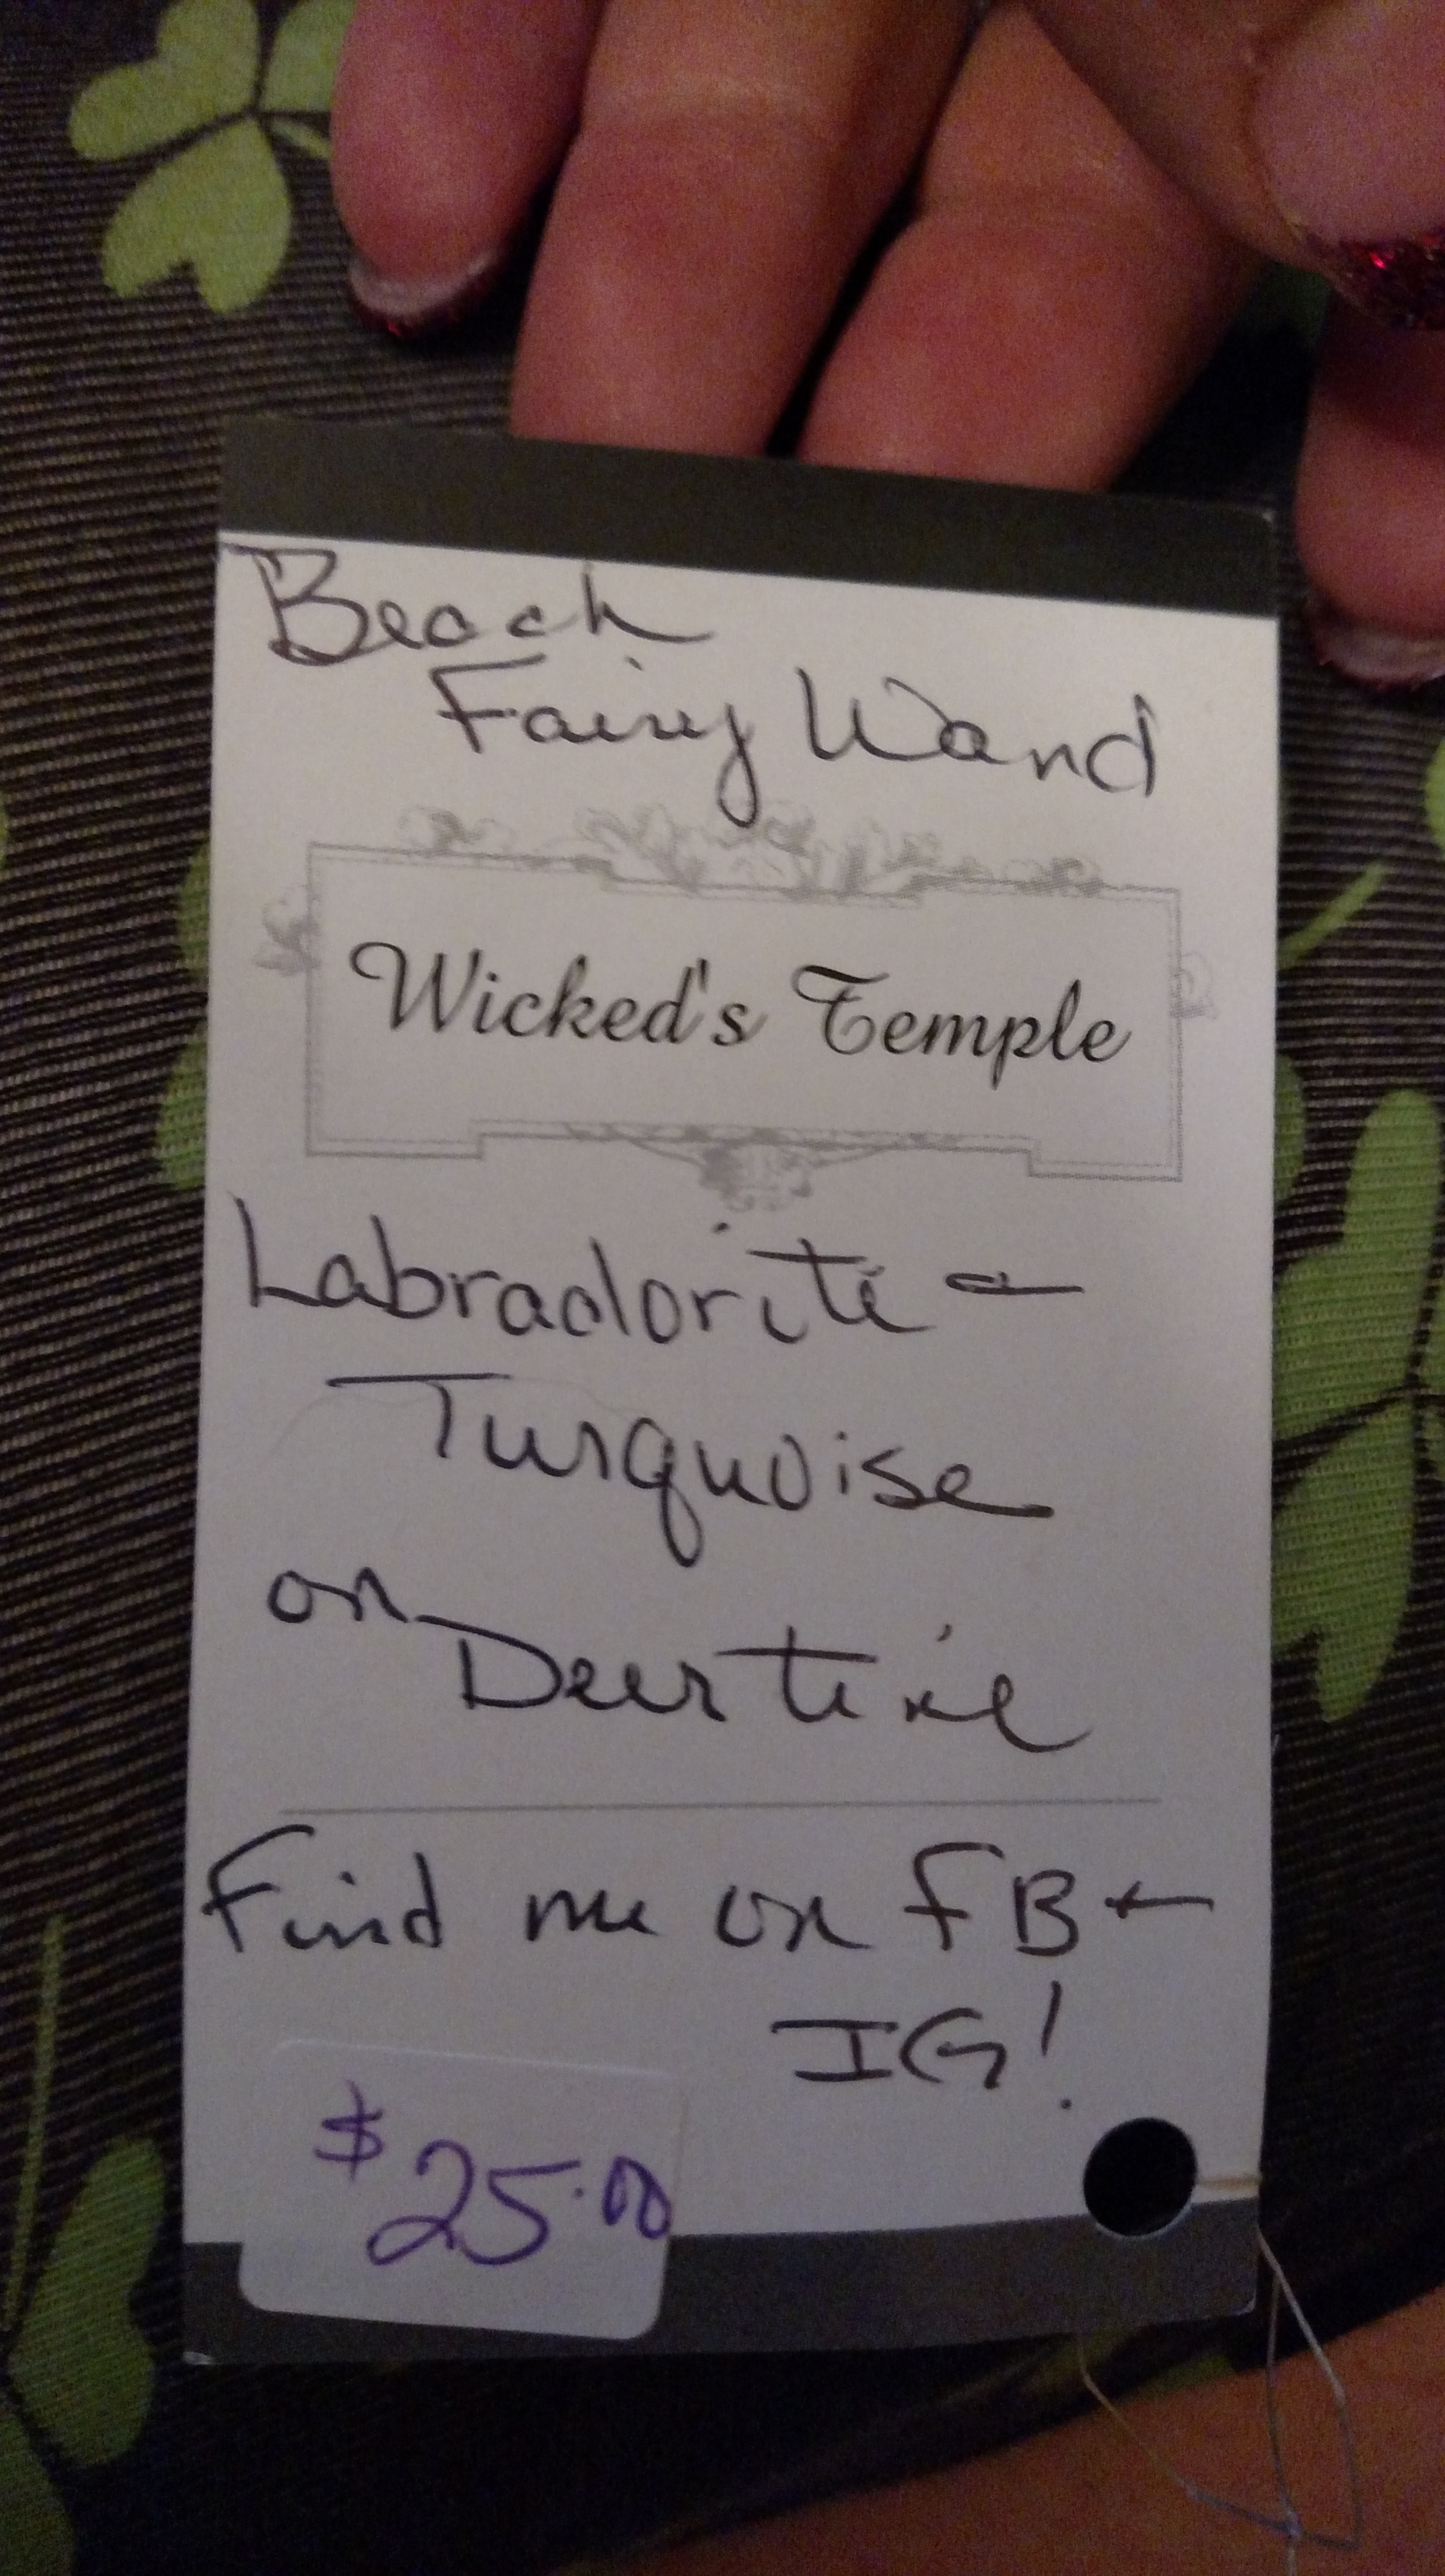 Beach
Fairy Wand
Wicked's Temple
Labradorite +
Turquoise
on Deer tine
Find me on FB +
IG!
$25.00